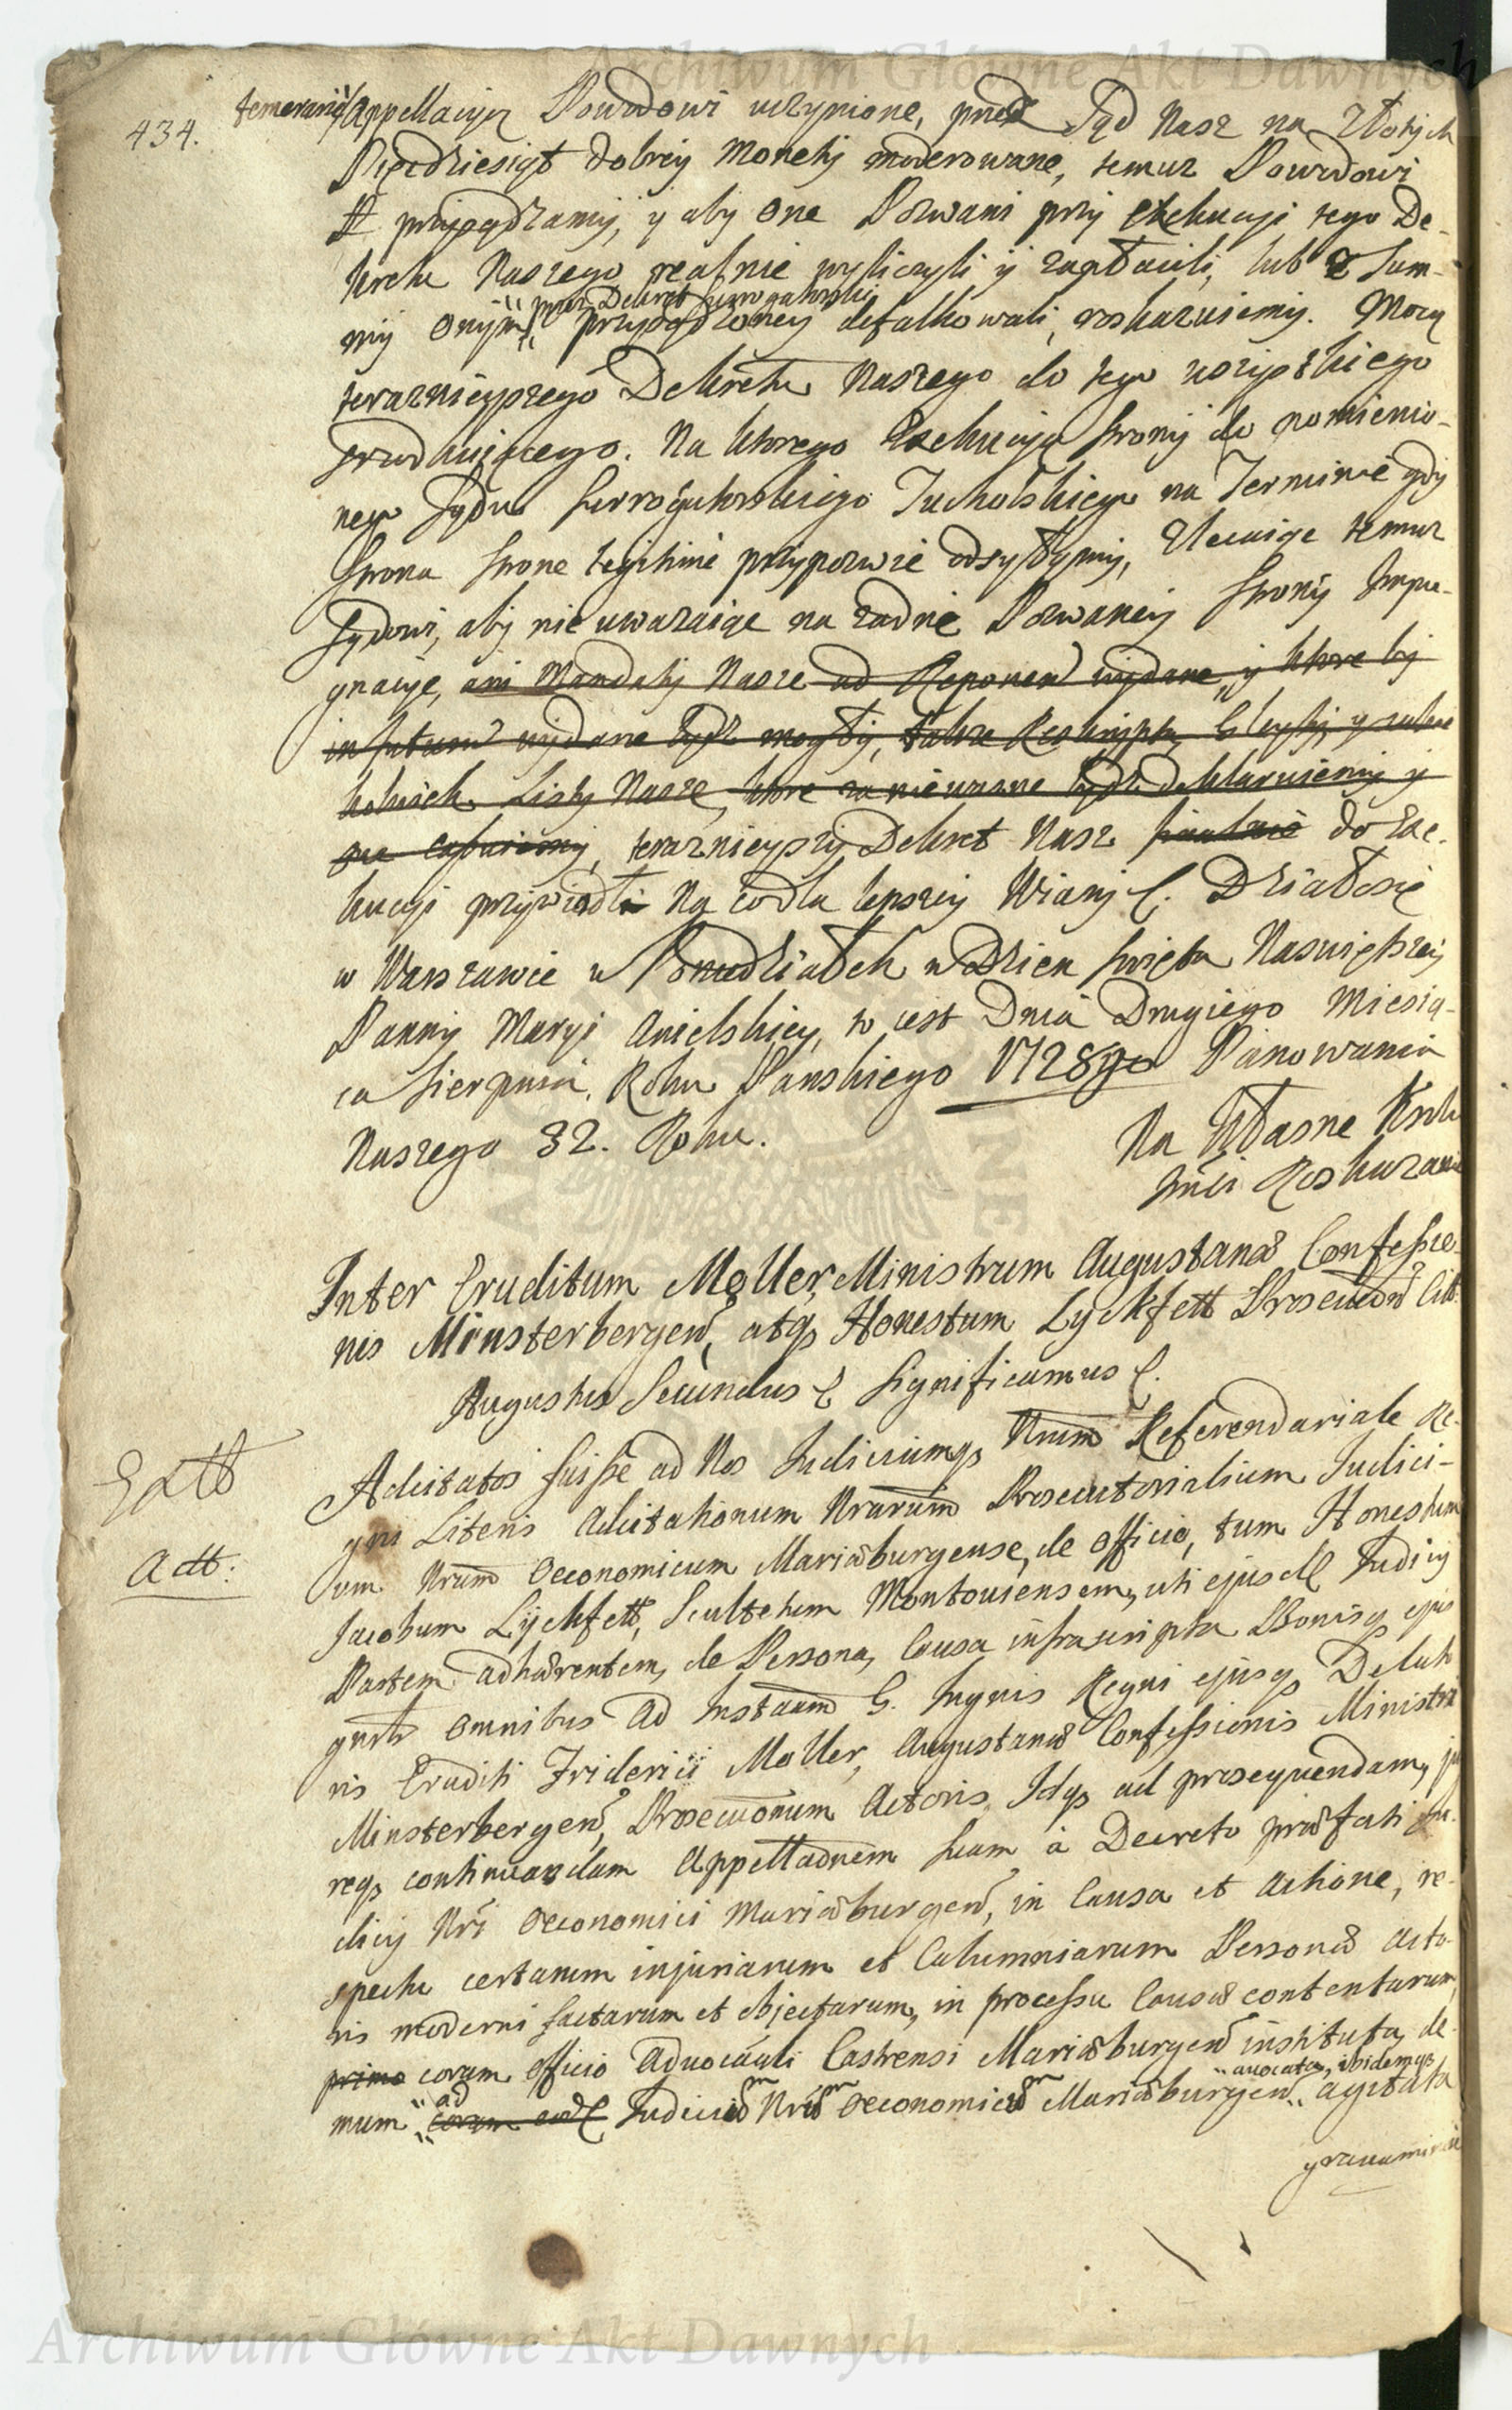 Archiwum Główne Akt Dawnych
434.
temerariè/ Appellacyą Powodowi uczynione, przed Sąd Nasz na Złotych
Pięćdziesiąt dobrey Monety moderowane, temuz Powodowi
przysądzamy, y aby one Pozwani przy Exekucyi tego De-
kretu Naszego realnie wyliczyli y zapłacili, lub z Sum-
przez Dekret Surrogatorski
my onym przysądzoney defalkowali, roskazuiemy. Mocą
teraznieyszego Dekretu Naszego do tego wszystkiego
Na ktorego Exekucyą Strony do pomienio-
nego Sądu Surrogatorskiego Tucholskiego na Terminie gdy
Strona Strone legitimè przypozwie odsyłamy, Zlecaiąc temuz
Sądowi, aby nie uwazaiąc na zadne Pozwaney Strony Impu-
gnacye, ani Mandaty Nasze ad Reponen wydane, y ktore by
in futurum wydane bydź mogły, takze Reskrypta, Gleyty, y
Listy Nasze, ktore za niewazne bydź deklaruiemy y
teraznieyszy Dekret Nasz do Exe-
kucyi przywiodł Na co dla lepszey Wiary &. Działo się
w Warszawie w Poniedziałek w Dzien Swięta Naswiętszey
Panny Maryi Anielskiey, to iest Dnia Drugiego Miesią-
ca Sierpnia, Roku Panskiego 1728go Panowania
Naszego 32. Roku.
Na Własne Krola
Jmci Roskazanie
Inter Eruditum Moller, Ministrum Augustanæ Confessio-
nis Minsterbergen, atq Honestum Lyckfett Prosecution Citt:
Augustus Secundus & Significamus &.
Adcitatos fuisse ad Nos Judiciumq Nrum Referendariale Re-
Actt:
gni Literis Adcitationum Nrarum Prosecutorialium Judici-
um Nrum Oeconomicum Mariæburgense, de officio, tum Honestum
Jacobum Lyckfett, Scultetum Montoviensem, uti ejusd Judicij
Partem adhærentem, de Persona, Causa infrascripta Bonisq ejus
gnrlr omnibus ad Instanm G. Ingnis Regni ejusq Delato
ris Eruditi Friderici Moller, Augustanæ Confessionis Ministri
Minsterbergen, Prosecutionum Actoris, Idq ad prosequendam, ju
req continuandam Appellationem suam à Decreto præfati Ju-
dicij Nri Oeconomici Mariæburgen, in Causa et Actione, re-
spectu certarum injuriarum et Calumniarum Personæ Acto-
ris moderni factarum et objectarum, in processu Causæ contentarum,
primo coram officio Advocatiali Castrensi Mariæburgen instituta, de-
ad avocata, ibidemq
mum coram eod Judicium Nrum Oeconomicum Mariæburgen agitata
gravamine
Archiwum Główne Akt Dawnych